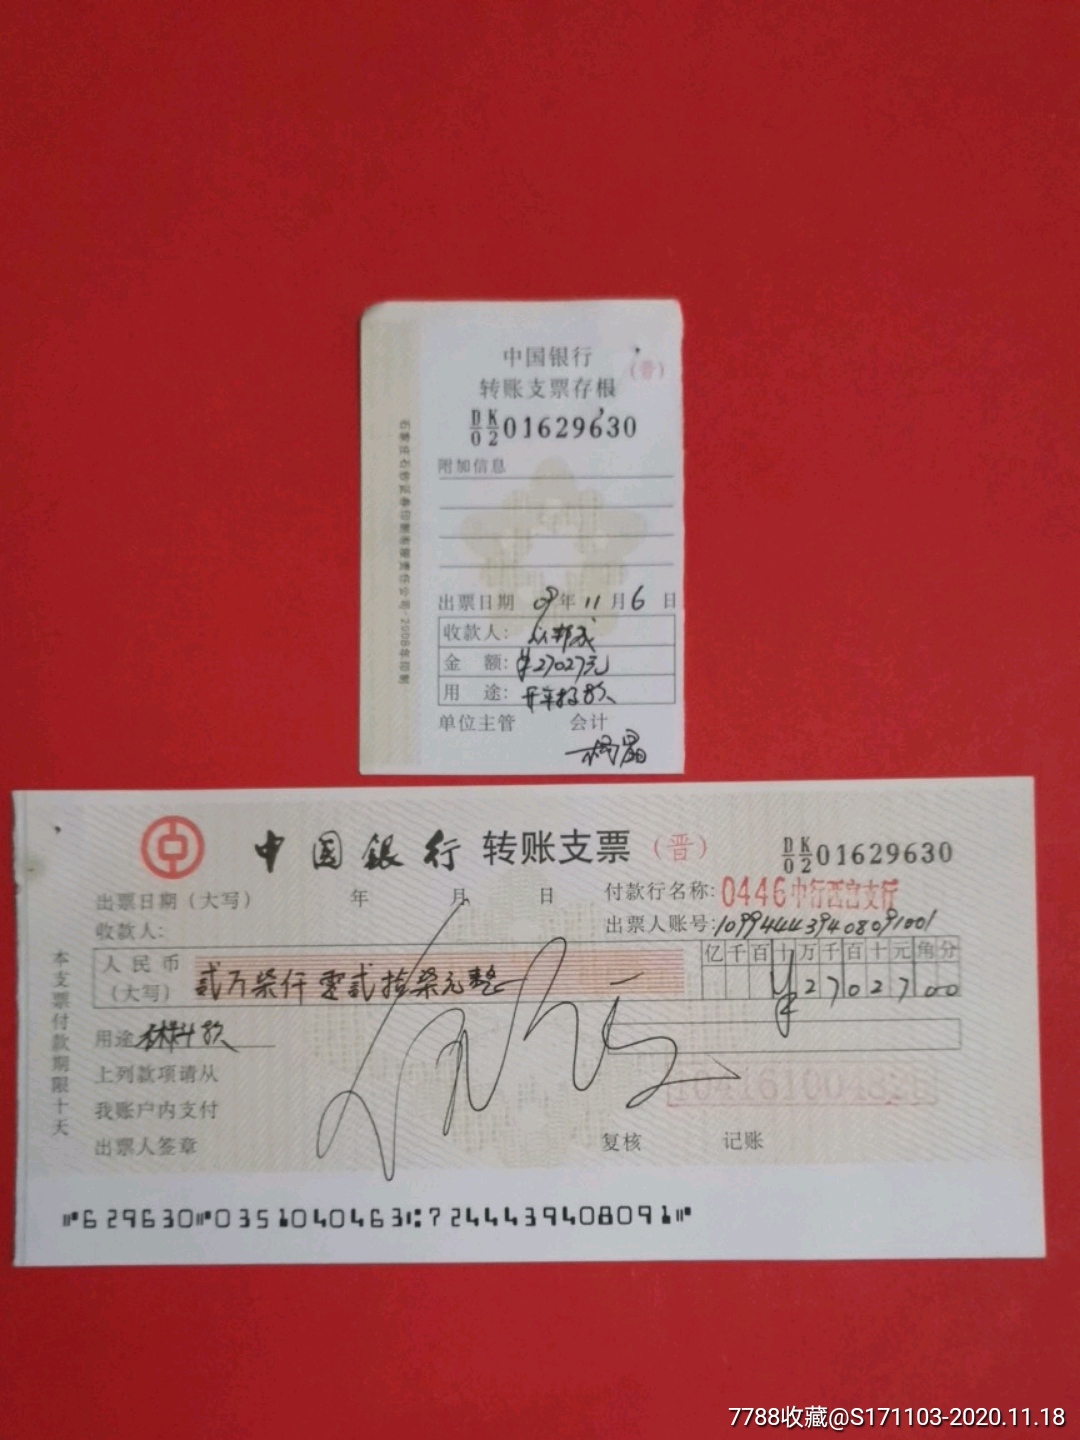 中国银行
(晋)
转账支票存根
DK
02 01629630
附加信息
出票日期 09年11月6日
收款人:
金 额: ¥27027元
用 途:
单位主管 会计
石家庄石钞证券印制有限责任公司·2008年印制
中国銀行 转账支票 (晋)
DK
02 01629630
出票日期(大写) 年 月 日
付款行名称: 0446中行西宫支行
收款人:
出票人账号: 109944439408091001
人民币(大写) 贰万柒仟零贰拾柒元整
亿千百十万千百十元角分
¥2702700
用途 材料款
上列款项请从
我账户内支付
出票人签章
复核 记账
104161004828
本支票付款期限十天
作废
⑈629630⑈03510404631⑆7244439408091⑈
7788收藏@S171103-2020.11.18